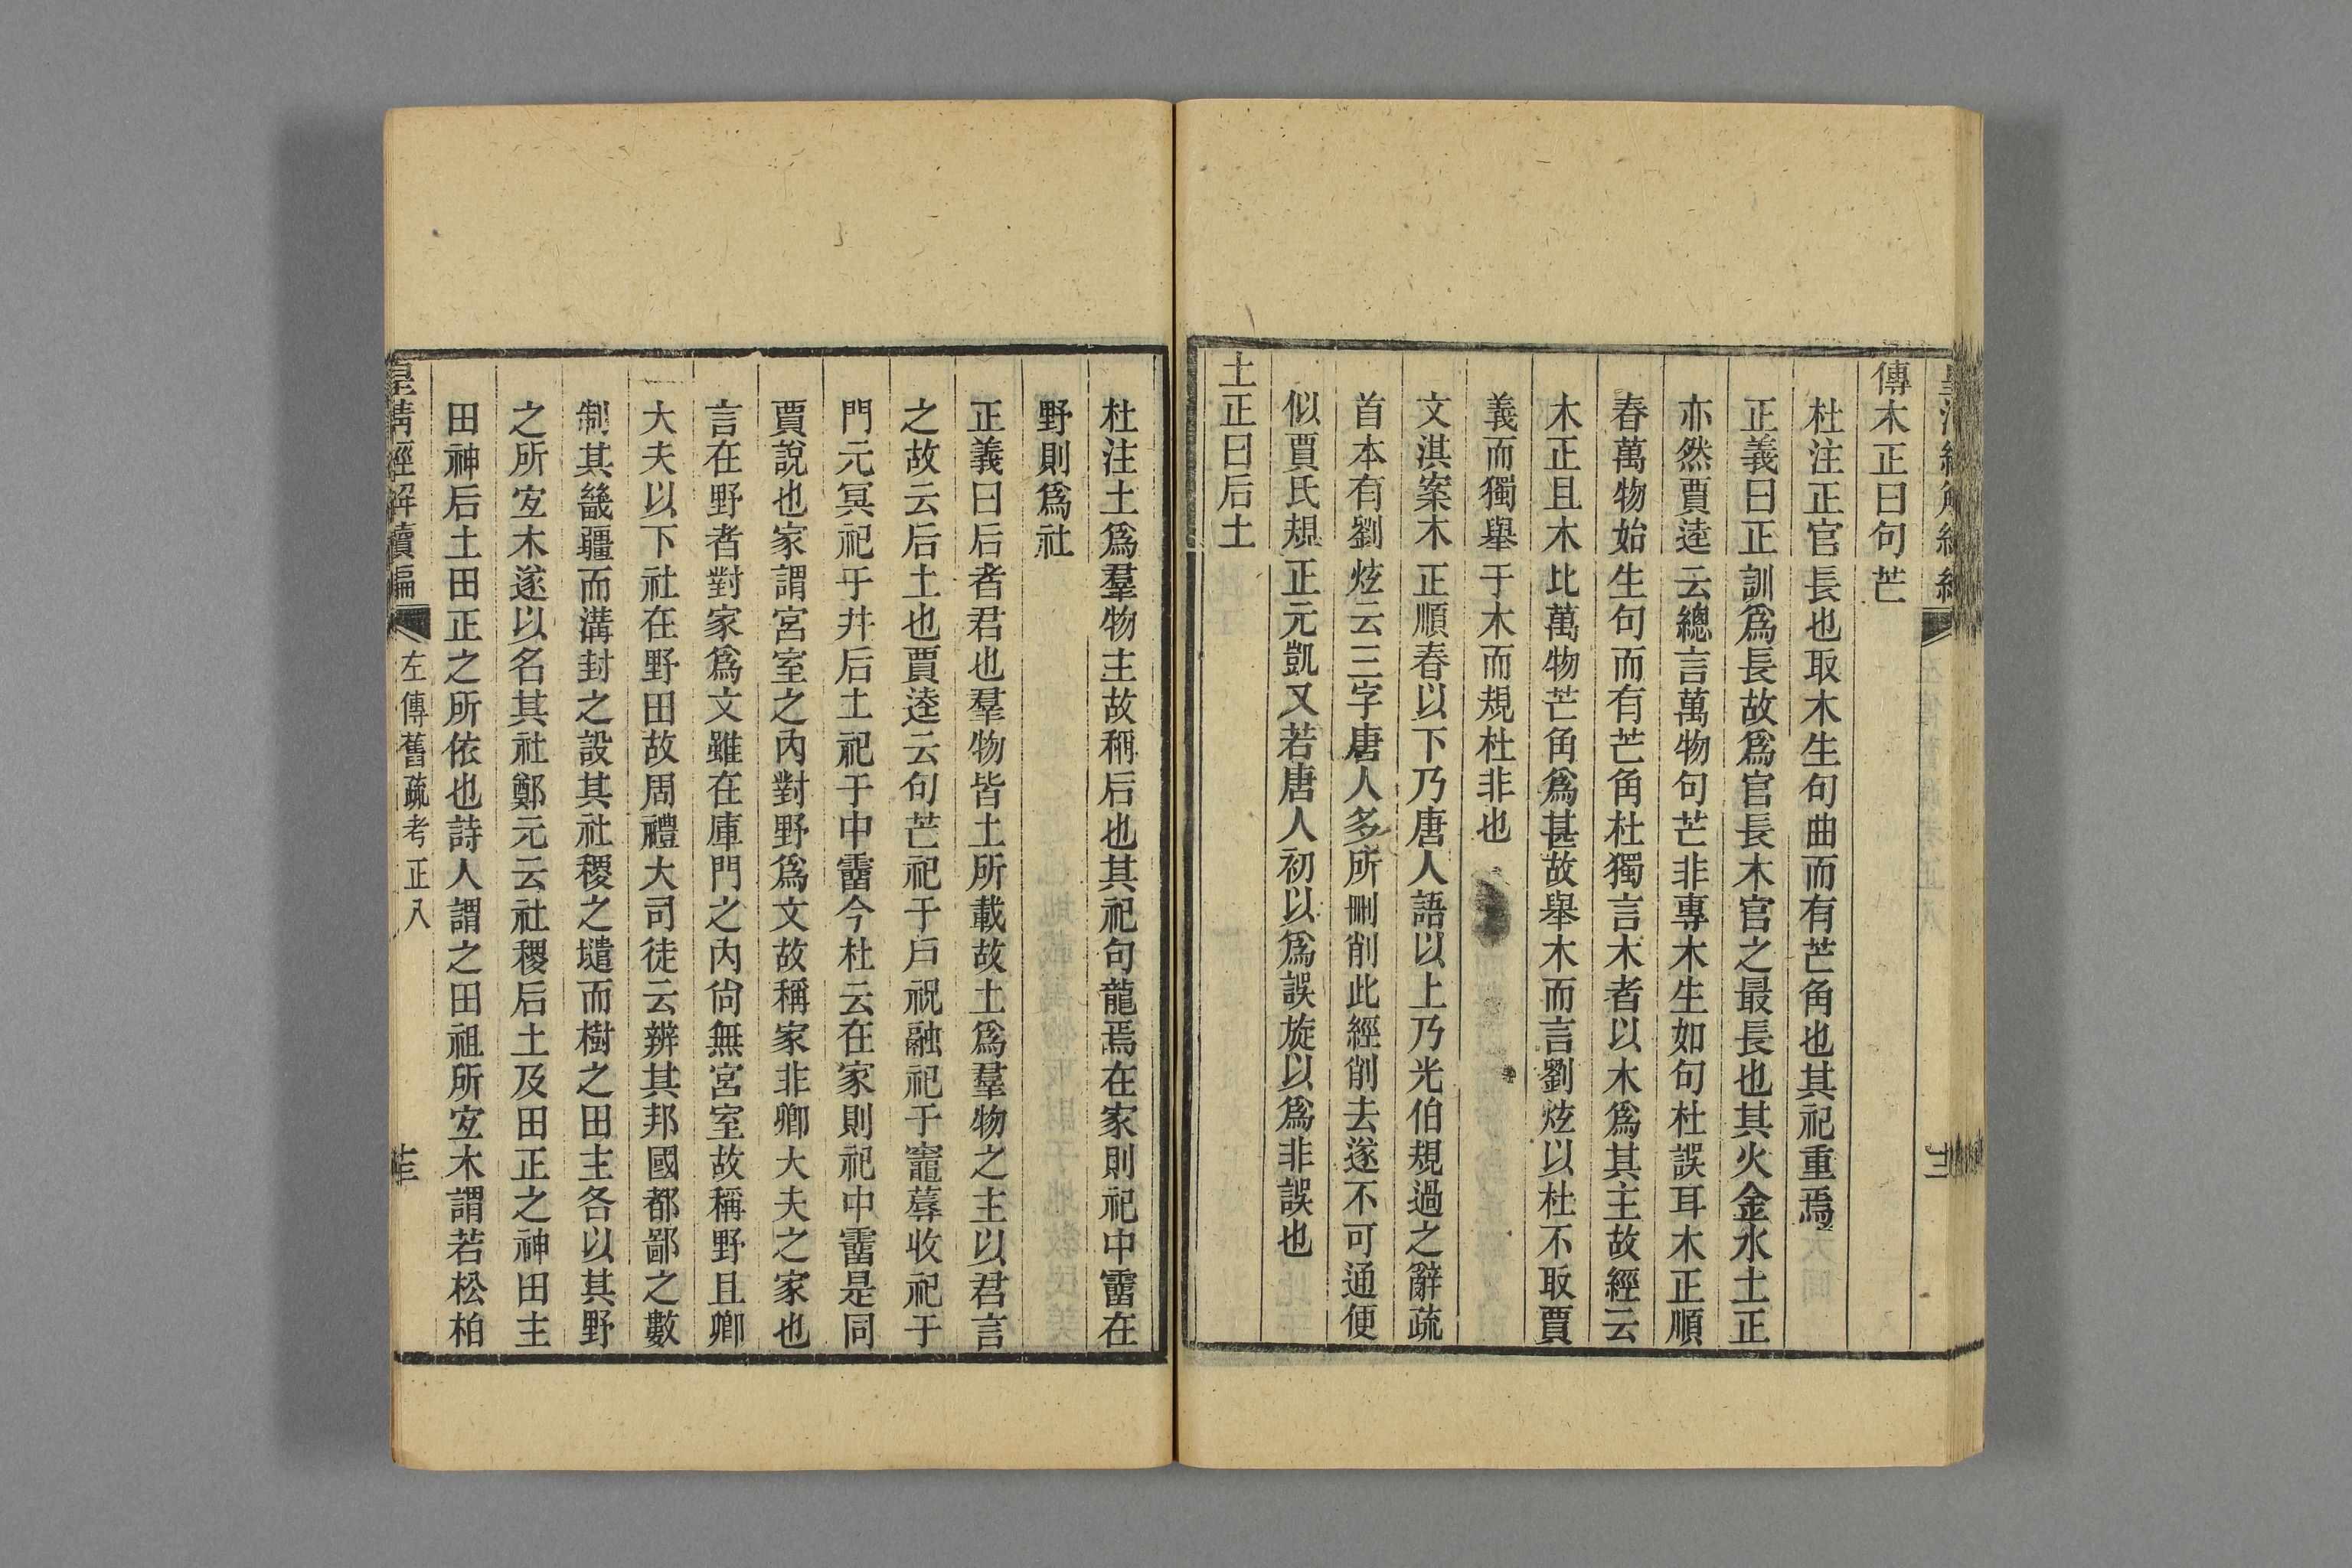 傳木正曰句芒
杜注正官長也取木生句曲而有芒角也其祀重焉
正義曰正訓爲長故爲官長木官之最長也其火金水土正
亦然賈逵云總言萬物句芒非專木生如句杜誤耳木正順
春萬物始生句而有芒角杜獨言木者以木爲其主故經云
木正且木比萬物芒角爲甚故舉木而言劉炫以杜不取賈
義而獨舉于木而規杜非也
文淇案木正順春以下乃唐人語以上乃光伯規過之辭疏
首本有劉炫云三字唐人多所刪削此經削去遂不可通便
似賈氏規正元凱又若唐人初以爲誤旋以爲非誤也
土正曰后土
杜注土爲羣物主故稱后也其祀句龍焉在家則祀中霤在
野則爲社
正義曰后者君也羣物皆土所載故土爲羣物之主以君言
之故云后土也賈逵云句芒祀于戶祝融祀于竈蓐收祀于
門元冥祀于井后土祀于中霤今杜云在家則祀中霤是同
賈說也家謂宮室之內對野爲文故稱家非卿大夫之家也
言在野者對家爲文雖在庫門之內尙無宮室故稱野且卿
大夫以下社在野田故周禮大司徒云辨其邦國都鄙之數
制其畿疆而溝封之設其社稷之壝而樹之田主各以其野
之所宐木遂以名其社鄭元云社稷后土及田正之神田主
田神后土田正之所依也詩人謂之田祖所宐木謂若松柏
皇清經解續編 左傳舊疏考正八